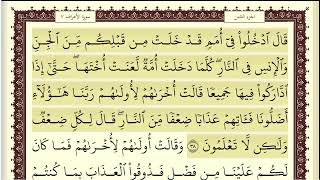 الجزء الثامن
سورة الأعراف ٧
قَالَ ٱدْخُلُوا۟ فِىٓ أُمَمٍ قَدْ خَلَتْ مِن قَبْلِكُم مِّنَ ٱلْجِنِّ
وَٱلْإِنسِ فِى ٱلنَّارِ ۖ كُلَّمَا دَخَلَتْ أُمَّةٌ لَّعَنَتْ أُخْتَهَا ۖ حَتَّىٰٓ إِذَا
ٱدَّارَكُوا۟ فِيهَا جَمِيعًا قَالَتْ أُخْرَىٰهُمْ لِأُولَىٰهُمْ رَبَّنَا هَٰٓؤُلَآءِ
أَضَلُّونَا فَـَٔاتِهِمْ عَذَابًا ضِعْفًا مِّنَ ٱلنَّارِ ۖ قَالَ لِكُلٍّ ضِعْفٌ
وَلَٰكِن لَّا تَعْلَمُونَ ٣٨ وَقَالَتْ أُولَىٰهُمْ لِأُخْرَىٰهُمْ فَمَا كَانَ
لَكُمْ عَلَيْنَا مِن فَضْلٍ فَذُوقُوا۟ ٱلْعَذَابَ بِمَا كُنتُمْ